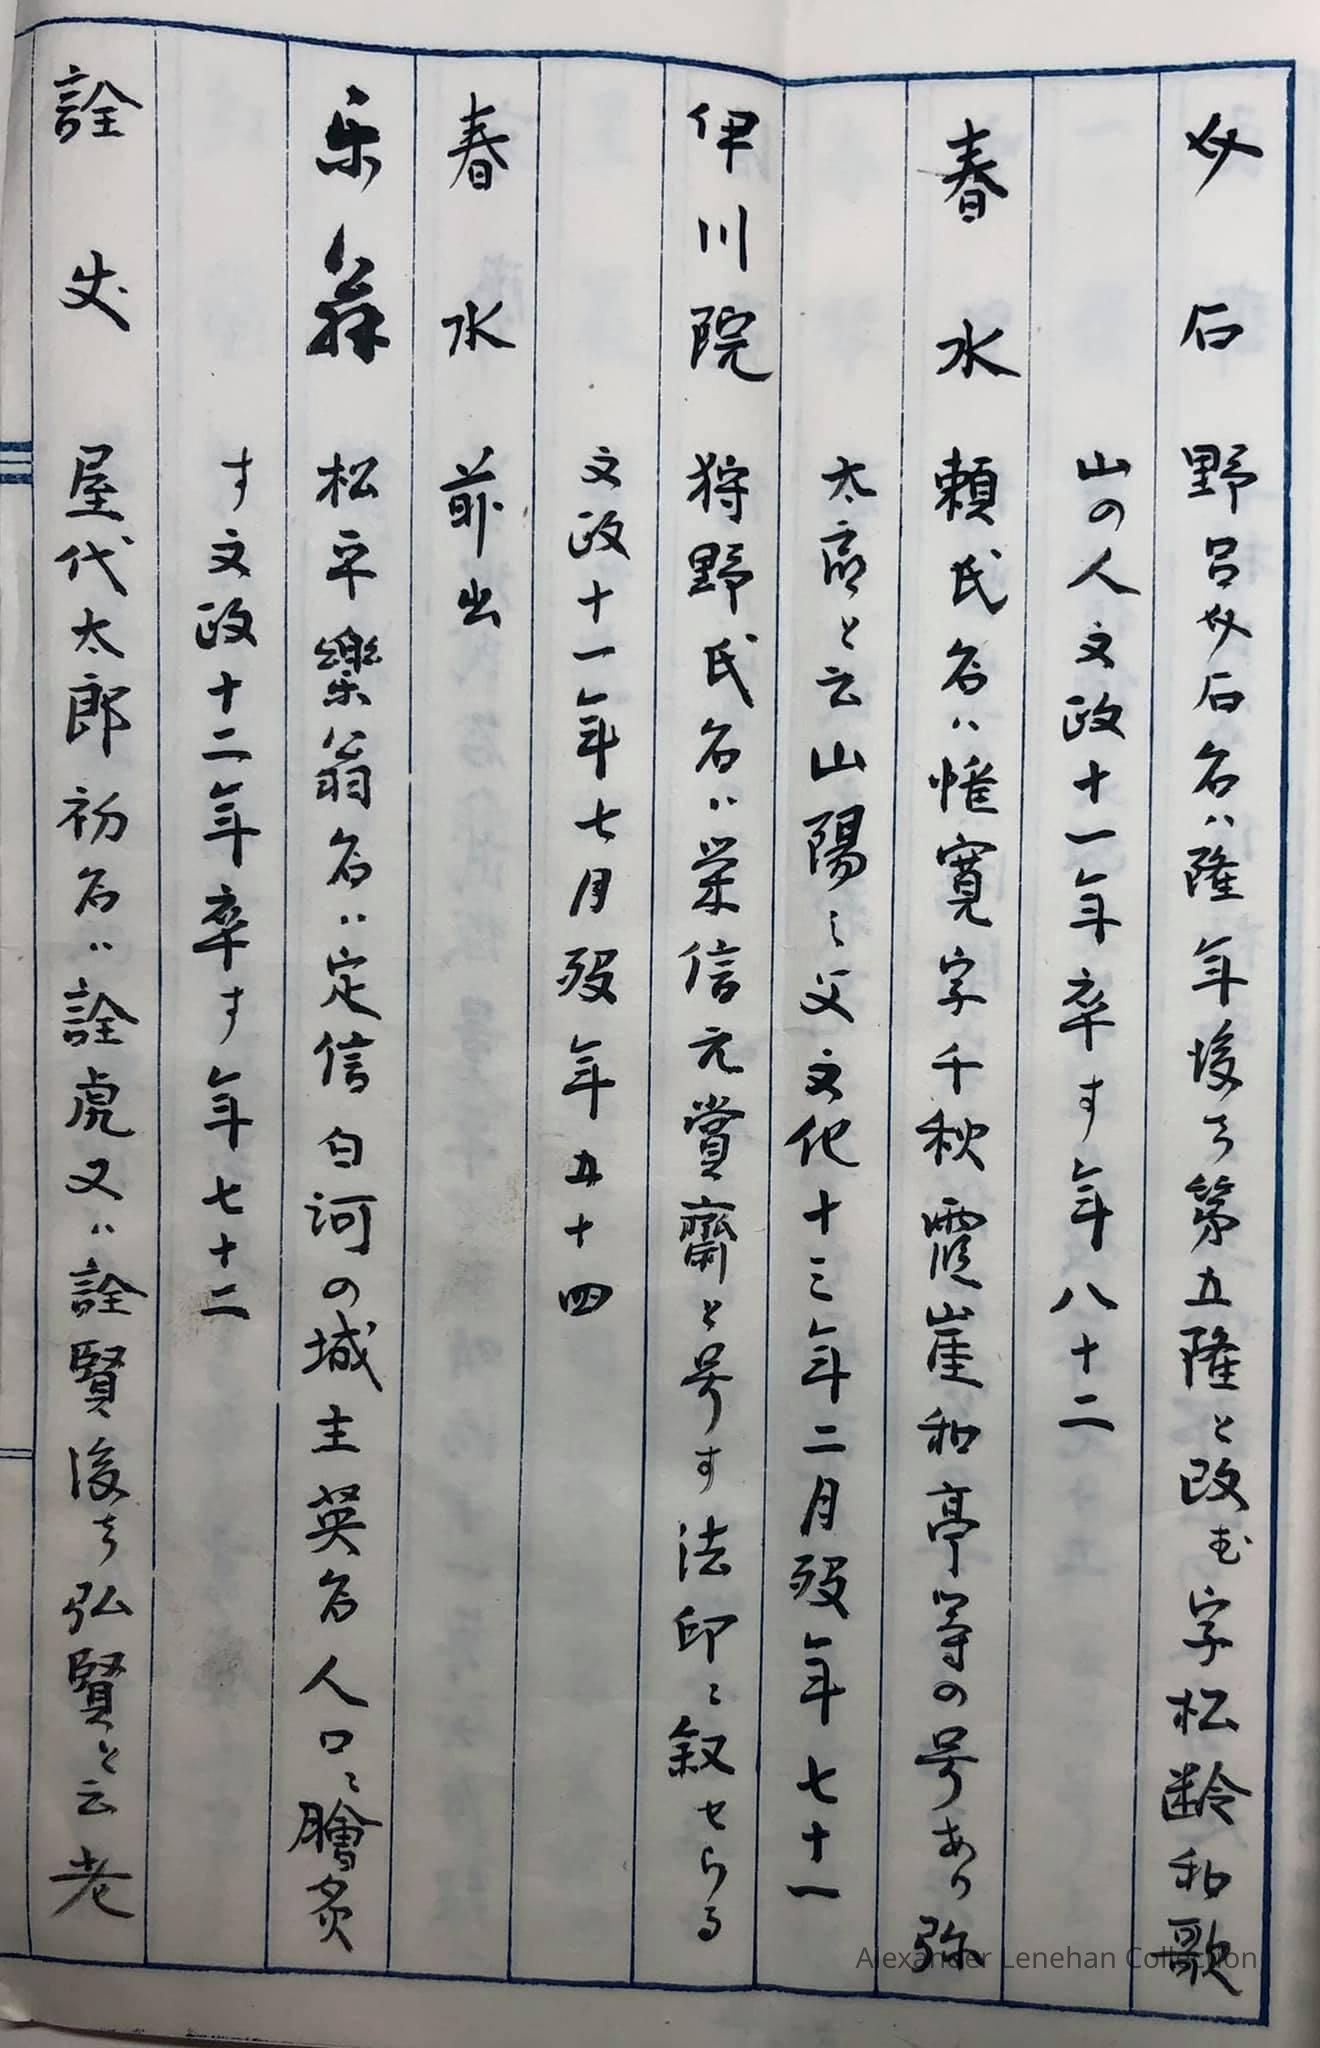 介石 野呂介石名ハ隆年後ち第五隆と改む字松齢和歌
山の人文政十一年卒す年八十二
春水 頼氏名ハ惟寛字千秋霞崖和亭等の号あり弥
太郎と云山陽ミ父文化十三年二月歿年七十一
伊川院 狩野氏名ハ栄信元賞齋と号す法印ニ叙せらる
文政十一年七月歿年五十四
春水 前出
乐翁 松平樂翁名ハ定信白河の城主英名人口ニ膾炙
す文政十二年卒す年七十二
詮丈 屋代太郎初名ハ詮虎又ハ詮賢後ち弘賢と云老
Alexander Lenehan Collection